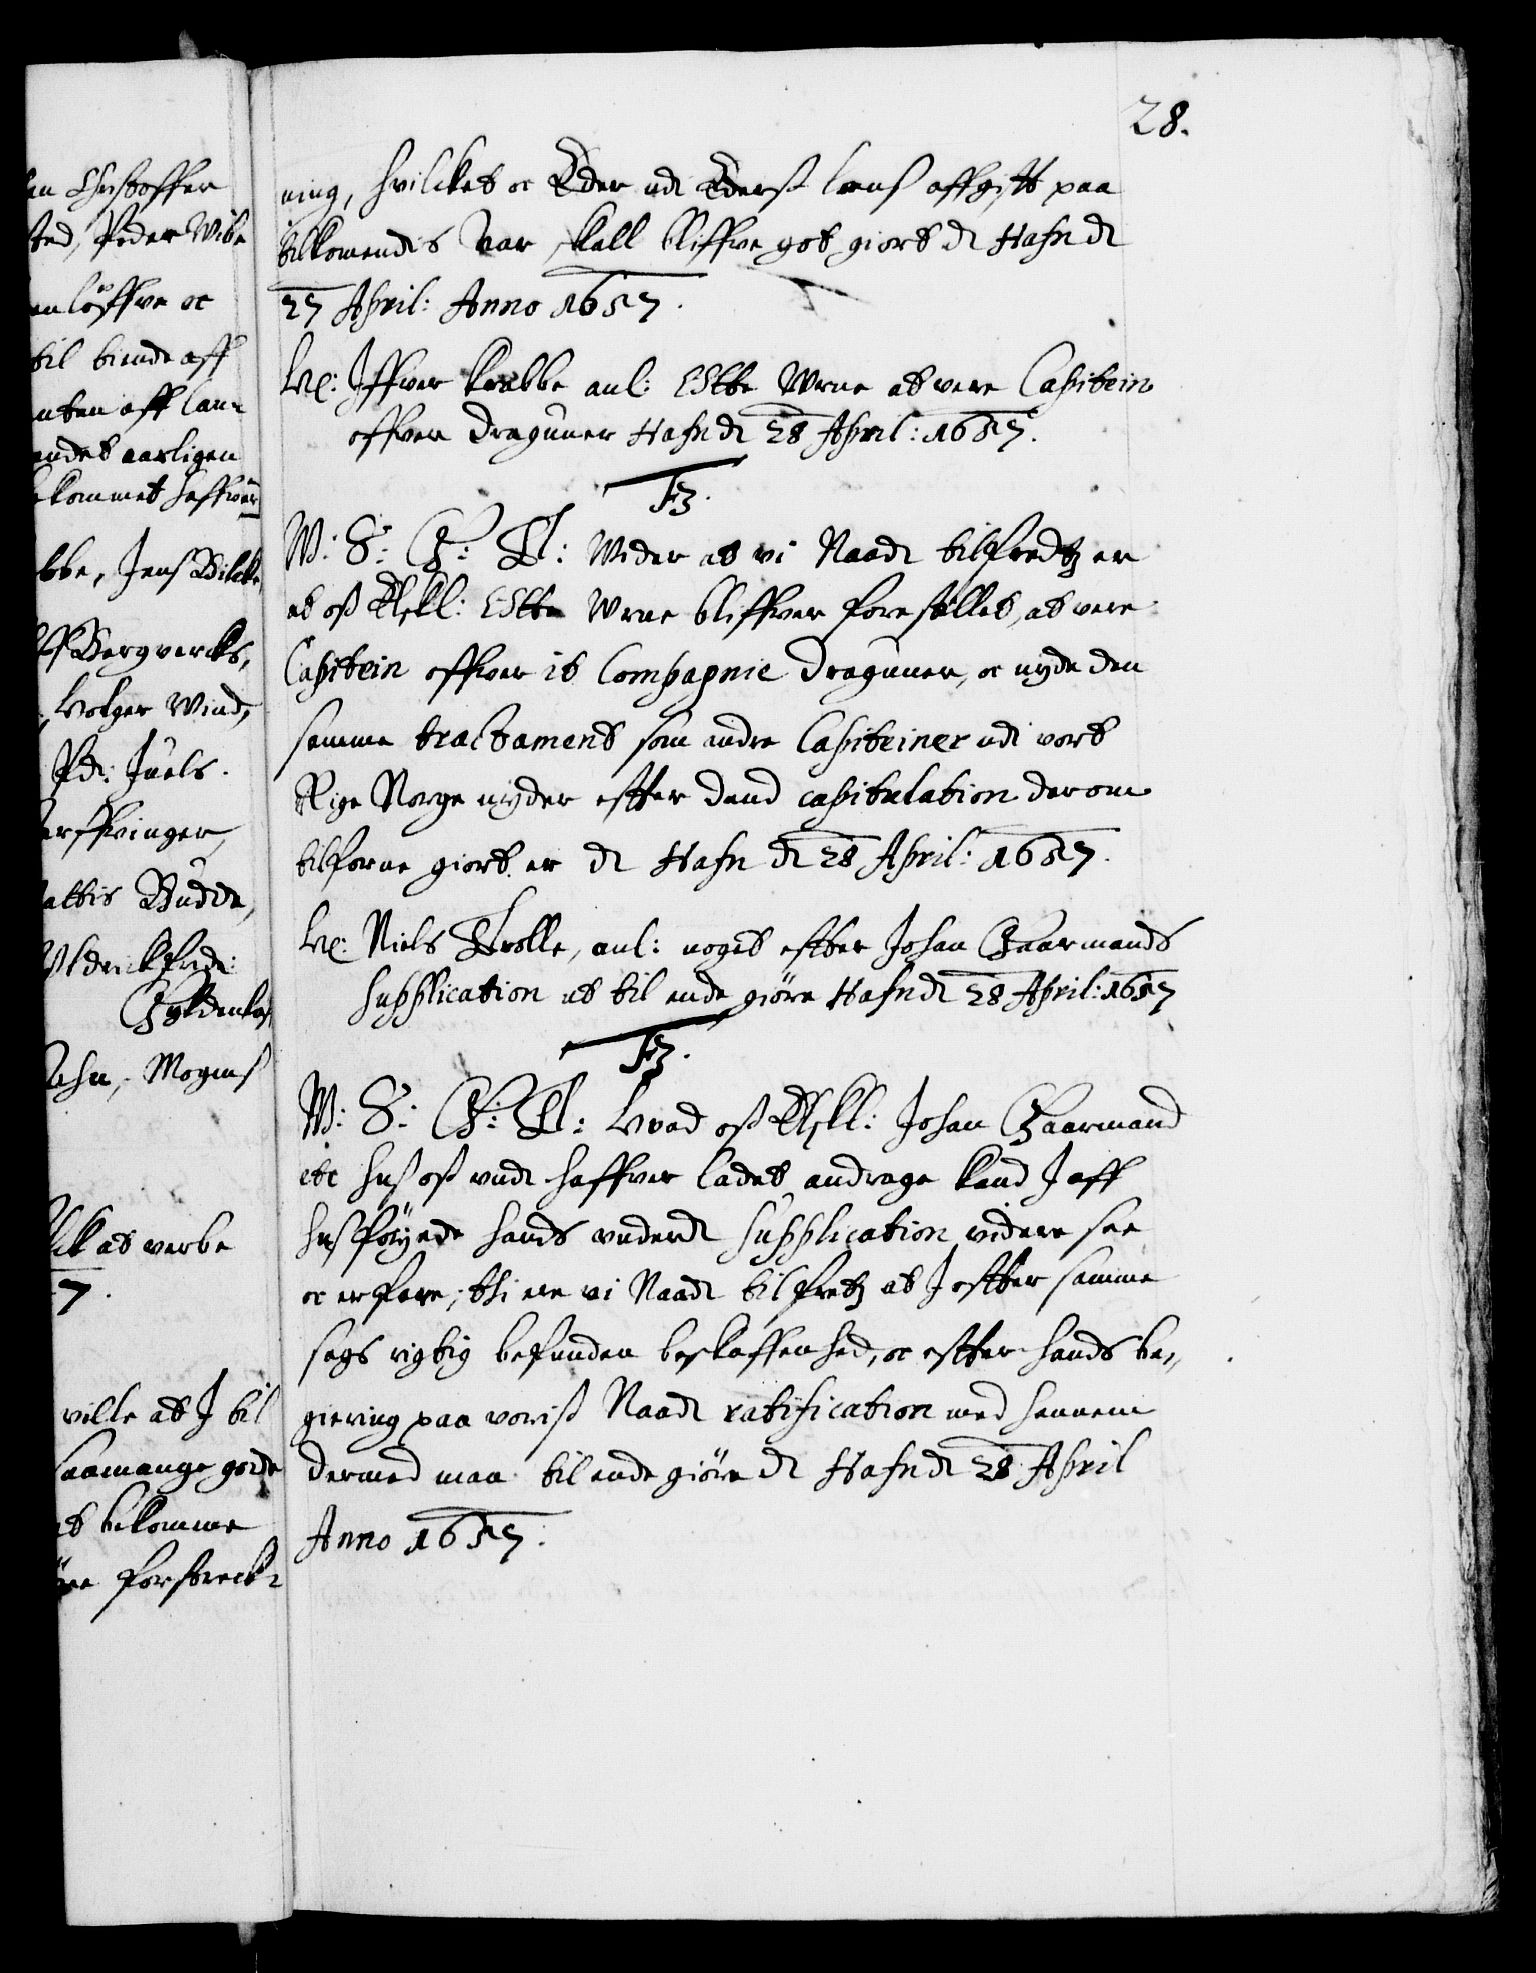 28.
ning, hvilcket oc Eder udi Eders Lens affgifft paa
tilkomendis Aar skall bliffve got giort dt Hafn dt
27 April: Anno 1657.
Her: Iffver Krabbe anl: Eske Urne at vere Capitein
offver draguner Hafn dt 28 April: 1657.
F3.
W: S: G: T: Wider at vi Naadt tilfredtz er
at oss Elskl: Eske Urne bliffver forestillet, at vere
Capitein offver it Compagnie draguner, oc nyde den
samme tractament som andre Capiteiner udi vort
Rige Norge nyder effter dend capitulation derom
tilforne giort er dt Hafn dt 28 April: 1657.
Her: Niels Trolle, anl: noget effter Johan Gaarmands
supplication at til ende giöre Hafn dt 28 April: 1657
F3.
W: S: G: T: Hvad oss Elskl: Johan Gaarmand
etc hos oss undt haffver ladet andrage kand I aff
hosföyede hands underdt supplication videre see
oc erfare; thi ere vi Naadt tilfretz at I effter samme
sags rigtig befunden beskaffenhed, oc effter hands be,,
giering paa voris Naadt ratification med hannem
dermed maa til ende giöre dt Hafn dt 28 April
Anno 1657.
en Christoffer
sted, Peder Wibe
en löffve oc
til tiende aff
enten aff Lan=
andet aarligen
ekommet haffver
bbe, Jens Bilcke,
ff Bergvercks,
Holger Wind,
Pdr: Juels.
erffvinger,
attis Budde,
Uldrick Frdr:
Gyldenlöv
ahn, Mogens
ck at verbe
7.
ville at I til
saamange gode
at bekomme
öre forstreck=